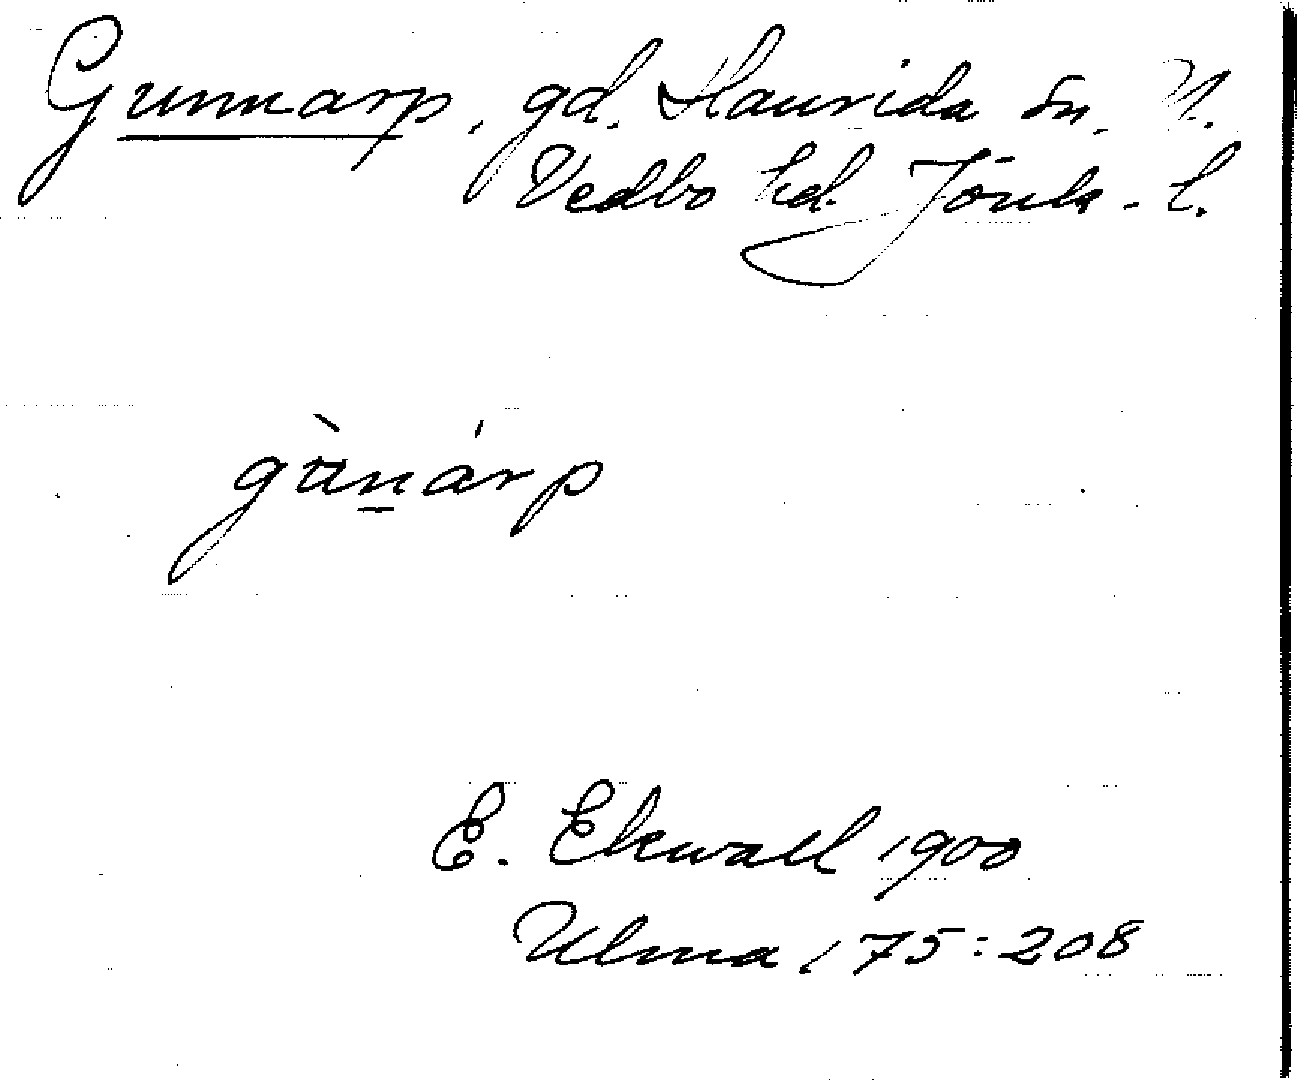 Gunnarp, gd. Haurida sn. N.
Vedbo hd. Jönk. l.
gùn̲árp
E. Ekwall 1900
Ulma 175:208